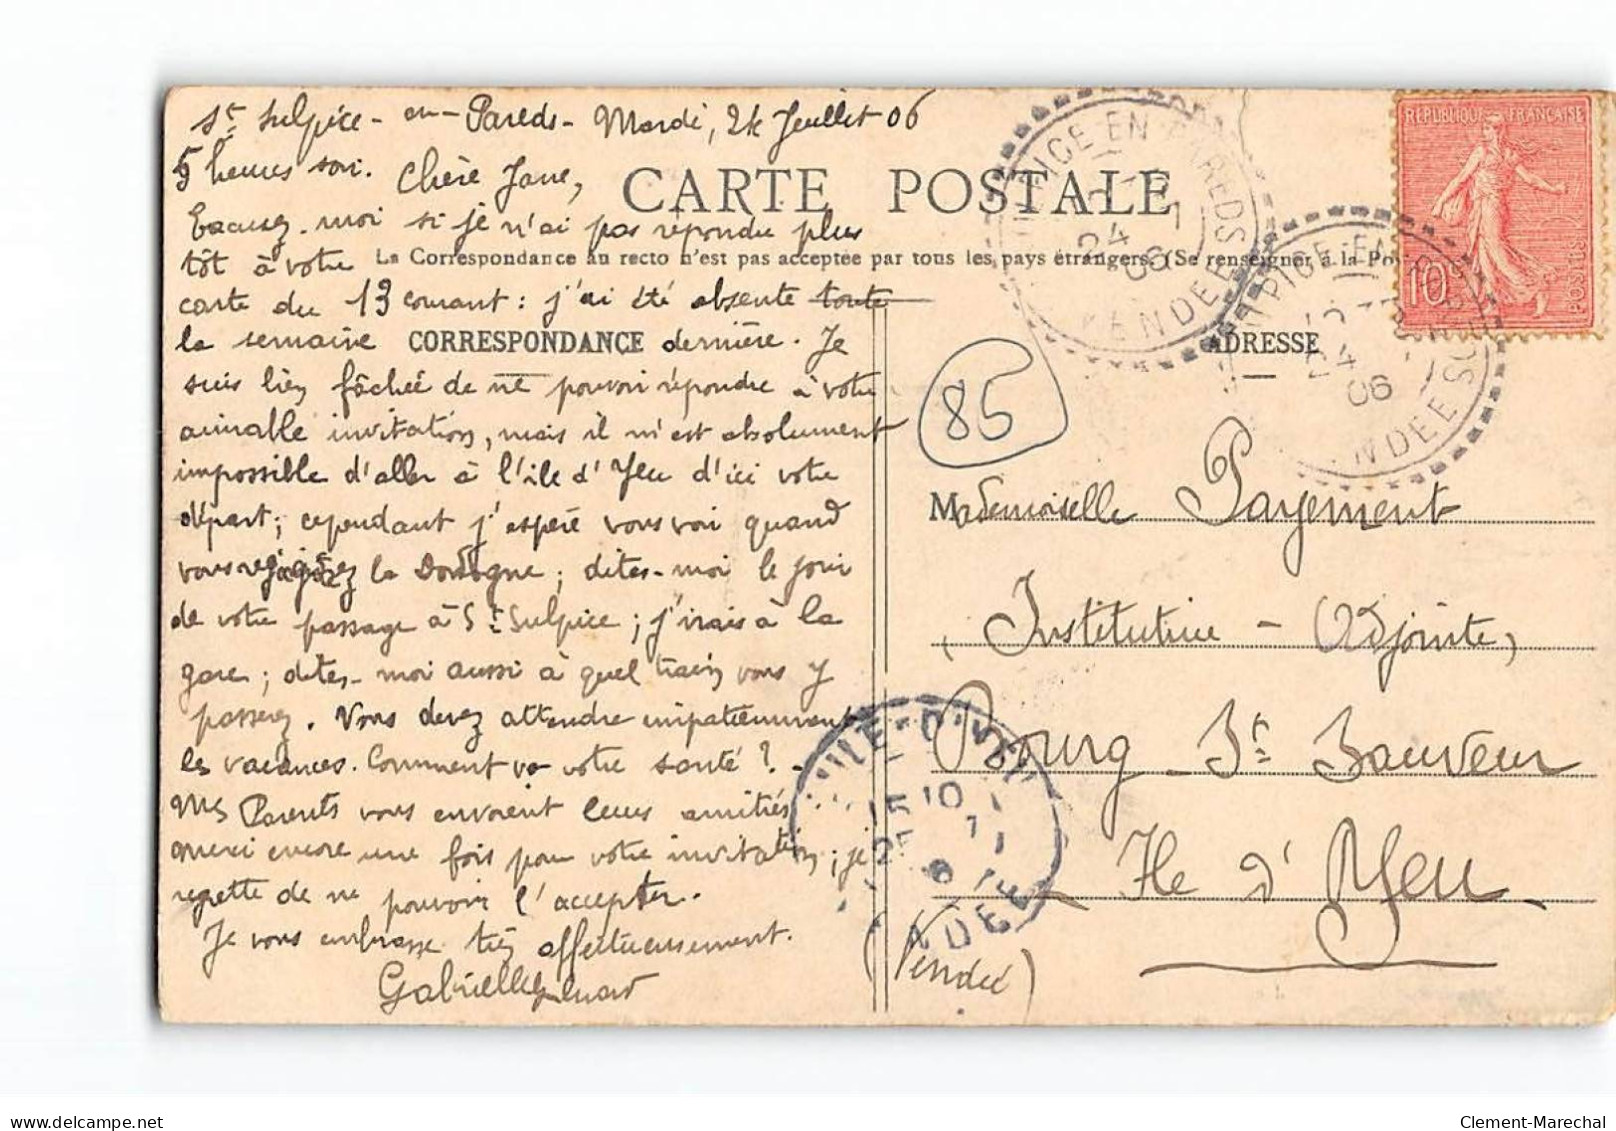 St Sulpice - en - Pareds - Mardi, 24 Juillet 06
5 heures soir. Chère Jane,
CARTE POSTALE
Excusez-moi si je n'ai pas répondu plus
tôt à votre
La Correspondance au recto n'est pas acceptée par tous les pays étrangers. (Se renseigner à la Pos
carte du 13 courant : j'ai été absente toute
la semaine dernière. Je
CORRESPONDANCE
suis bien fâchée de ne pouvoir répondre à votre
aimable invitation, mais il m'est absolument
impossible d'aller à l'île d'Yeu d'ici votre
départ ; cependant j'espère vous voir quand
vous la Dordogne ; dites-moi le jour
de votre passage à St Sulpice ; j'irais à la
gare ; dites-moi aussi à quel train vous y
passerez. Vous devez attendre impatiemment
les vacances. Comment va votre santé ? -
Mes Parents vous envoient leurs amitiés
merci encore une fois pour votre invitation ; je
regrette de ne pouvoir l'accepter.
Je vous embrasse très affectueusement.
Gabrielle
ADRESSE
85
Mademoiselle Payement
Institutrice - Adjointe,
Bourg St Sauveur
Ile d'Yeu
(Vendée)
RÉPUBLIQUE FRANÇAISE
10c
POSTES
PICE-EN-PAREDS
24
7
06
VENDEE
PICE-EN
24
06
VENDEE
ILE-D'YEU
10
25
7
VENDEE
Clement-Marechal